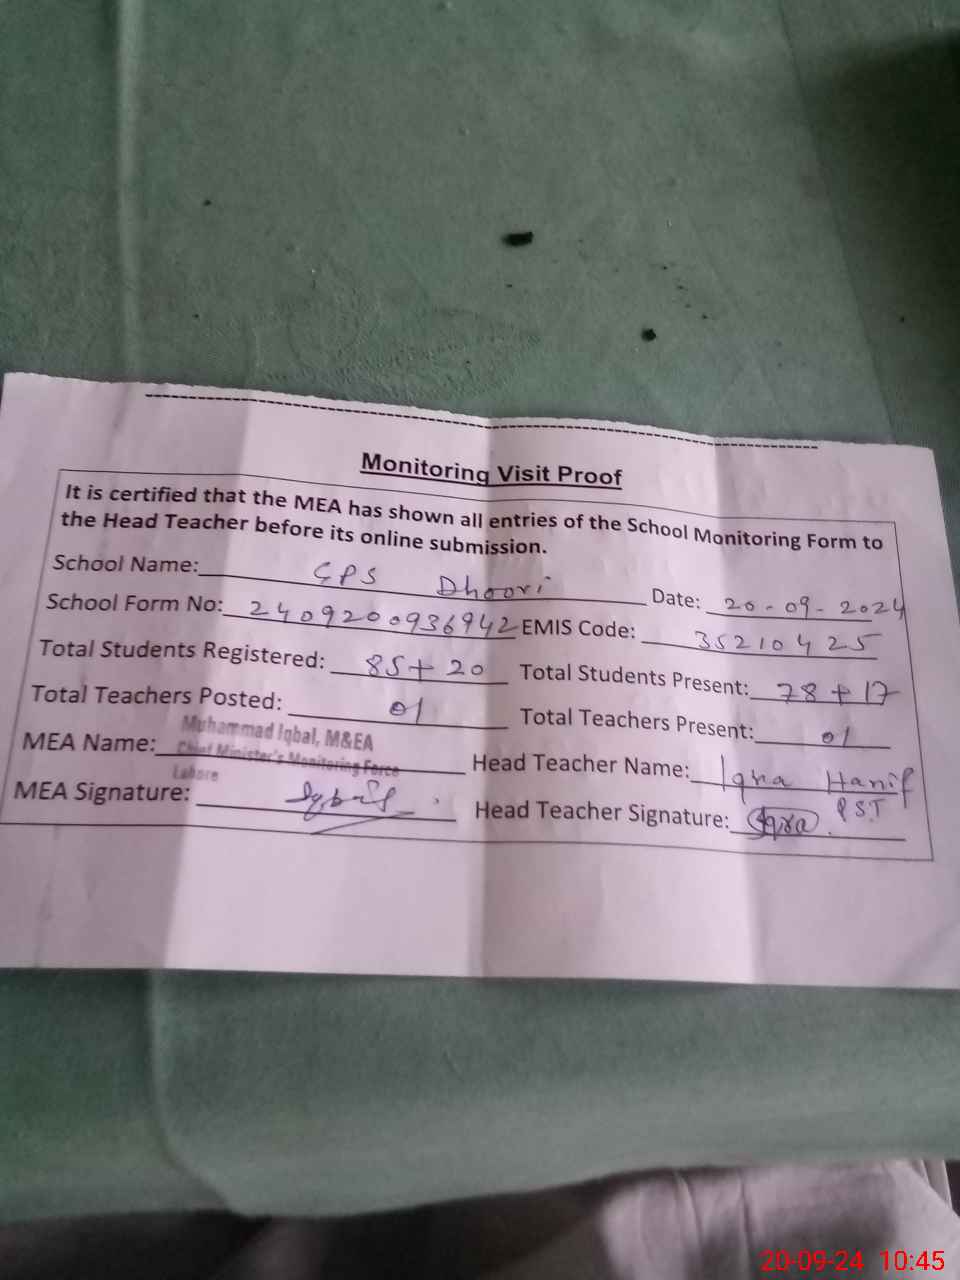 Monitoring Visit Proof
It is certified that the MEA has shown all entries of the School Monitoring Form to
the Head Teacher before its online submission.
School Name: GPS Dhoori Date: 20-09-2024
School Form No: 2409200936942 EMIS Code: 35210425
Total Students Registered: 85+20 Total Students Present: 78+17
Total Teachers Posted: 01 Total Teachers Present: 01
MEA Name: Muhammad Iqbal, M&EA
Chief Minister's Monitoring Force
Lahore
Head Teacher Name: Iqra Hanif
PST
MEA Signature: Iqbal Head Teacher Signature: Iqra
20-09-24 10:45